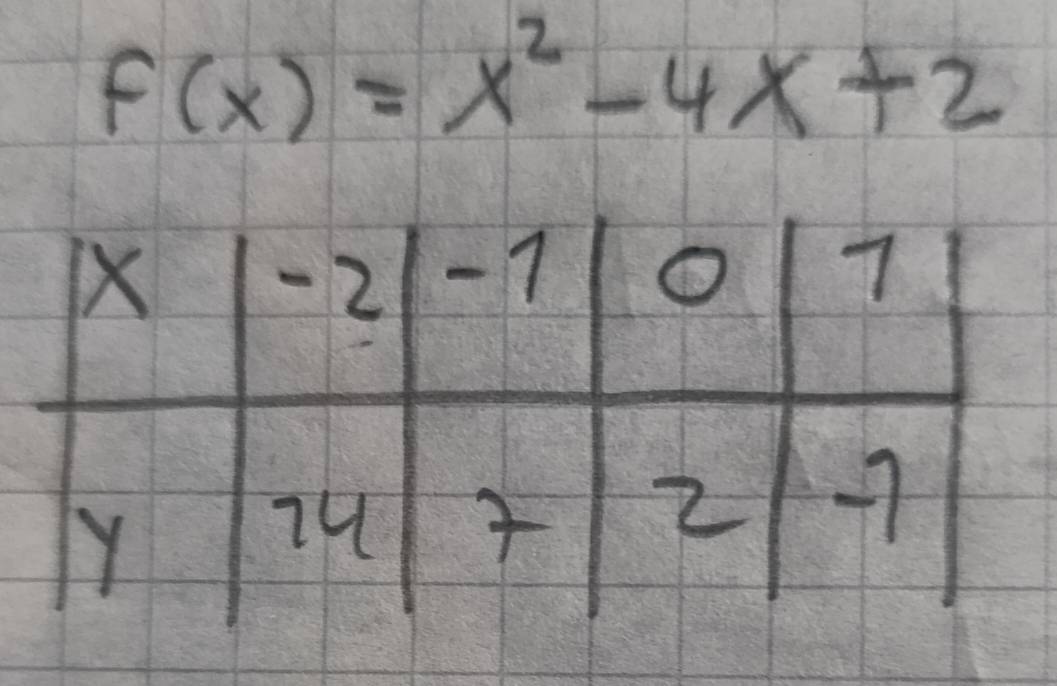 f(x) = x² - 4x + 2
x -2 -1 0 1
y 14 7 2 -1